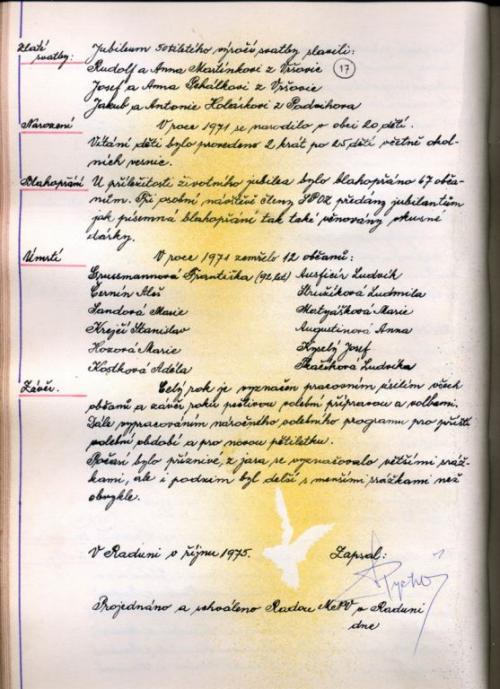 Zlaté svatby:
Jubileum 50tiletého výročí svatby slavili:
Rudolf a Anna Martínkovi z Vršovic
17
Josef a Anna Pchálkovi z Vršovic
Jakub a Antonie Holáškovi z Podvihova
Narození
V roce 1971 se narodilo v obci 20 dětí.
Vítání dětí bylo provedeno 2 krát po 25 dětí včetně okol-
ních vesnic.
Blahopřání
U příležitosti životního jubilea bylo blahopřáno 67 obča-
nům. Při osobní návštěvě členy SPOZ předány jubilantům
jak písemná blahopřání tak také věnovány vkusné
dárky.
Úmrtí
V roce 1971 zemřelo 12 občanů:
Grussmannová Františka (92 let) Ludvík
Černín Aleš Stružíková Ludmila
Sandová Marie Matyášková Marie
Krejčí Stanislav Augustinová Anna
Hozová Marie Kyselý Josef
Hodková Adéla Tkačíková Ludvika
Závěr.
Celý rok je vyznačen pracovním úsilím všech
občanů a závěr roku pečlivou volební přípravou a volbami.
Dále vypracováním náročného volebního programu pro příští
volební období a pro novou pětiletku.
Počasí bylo příznivé, z jara se vyznačovalo většími sráž-
kami, ale i podzim byl delší s menšími srážkami než
obvykle.
V Raduni v říjnu 1975. Zapsal:
Projednáno a schváleno Radou MěNV v Raduni
dne